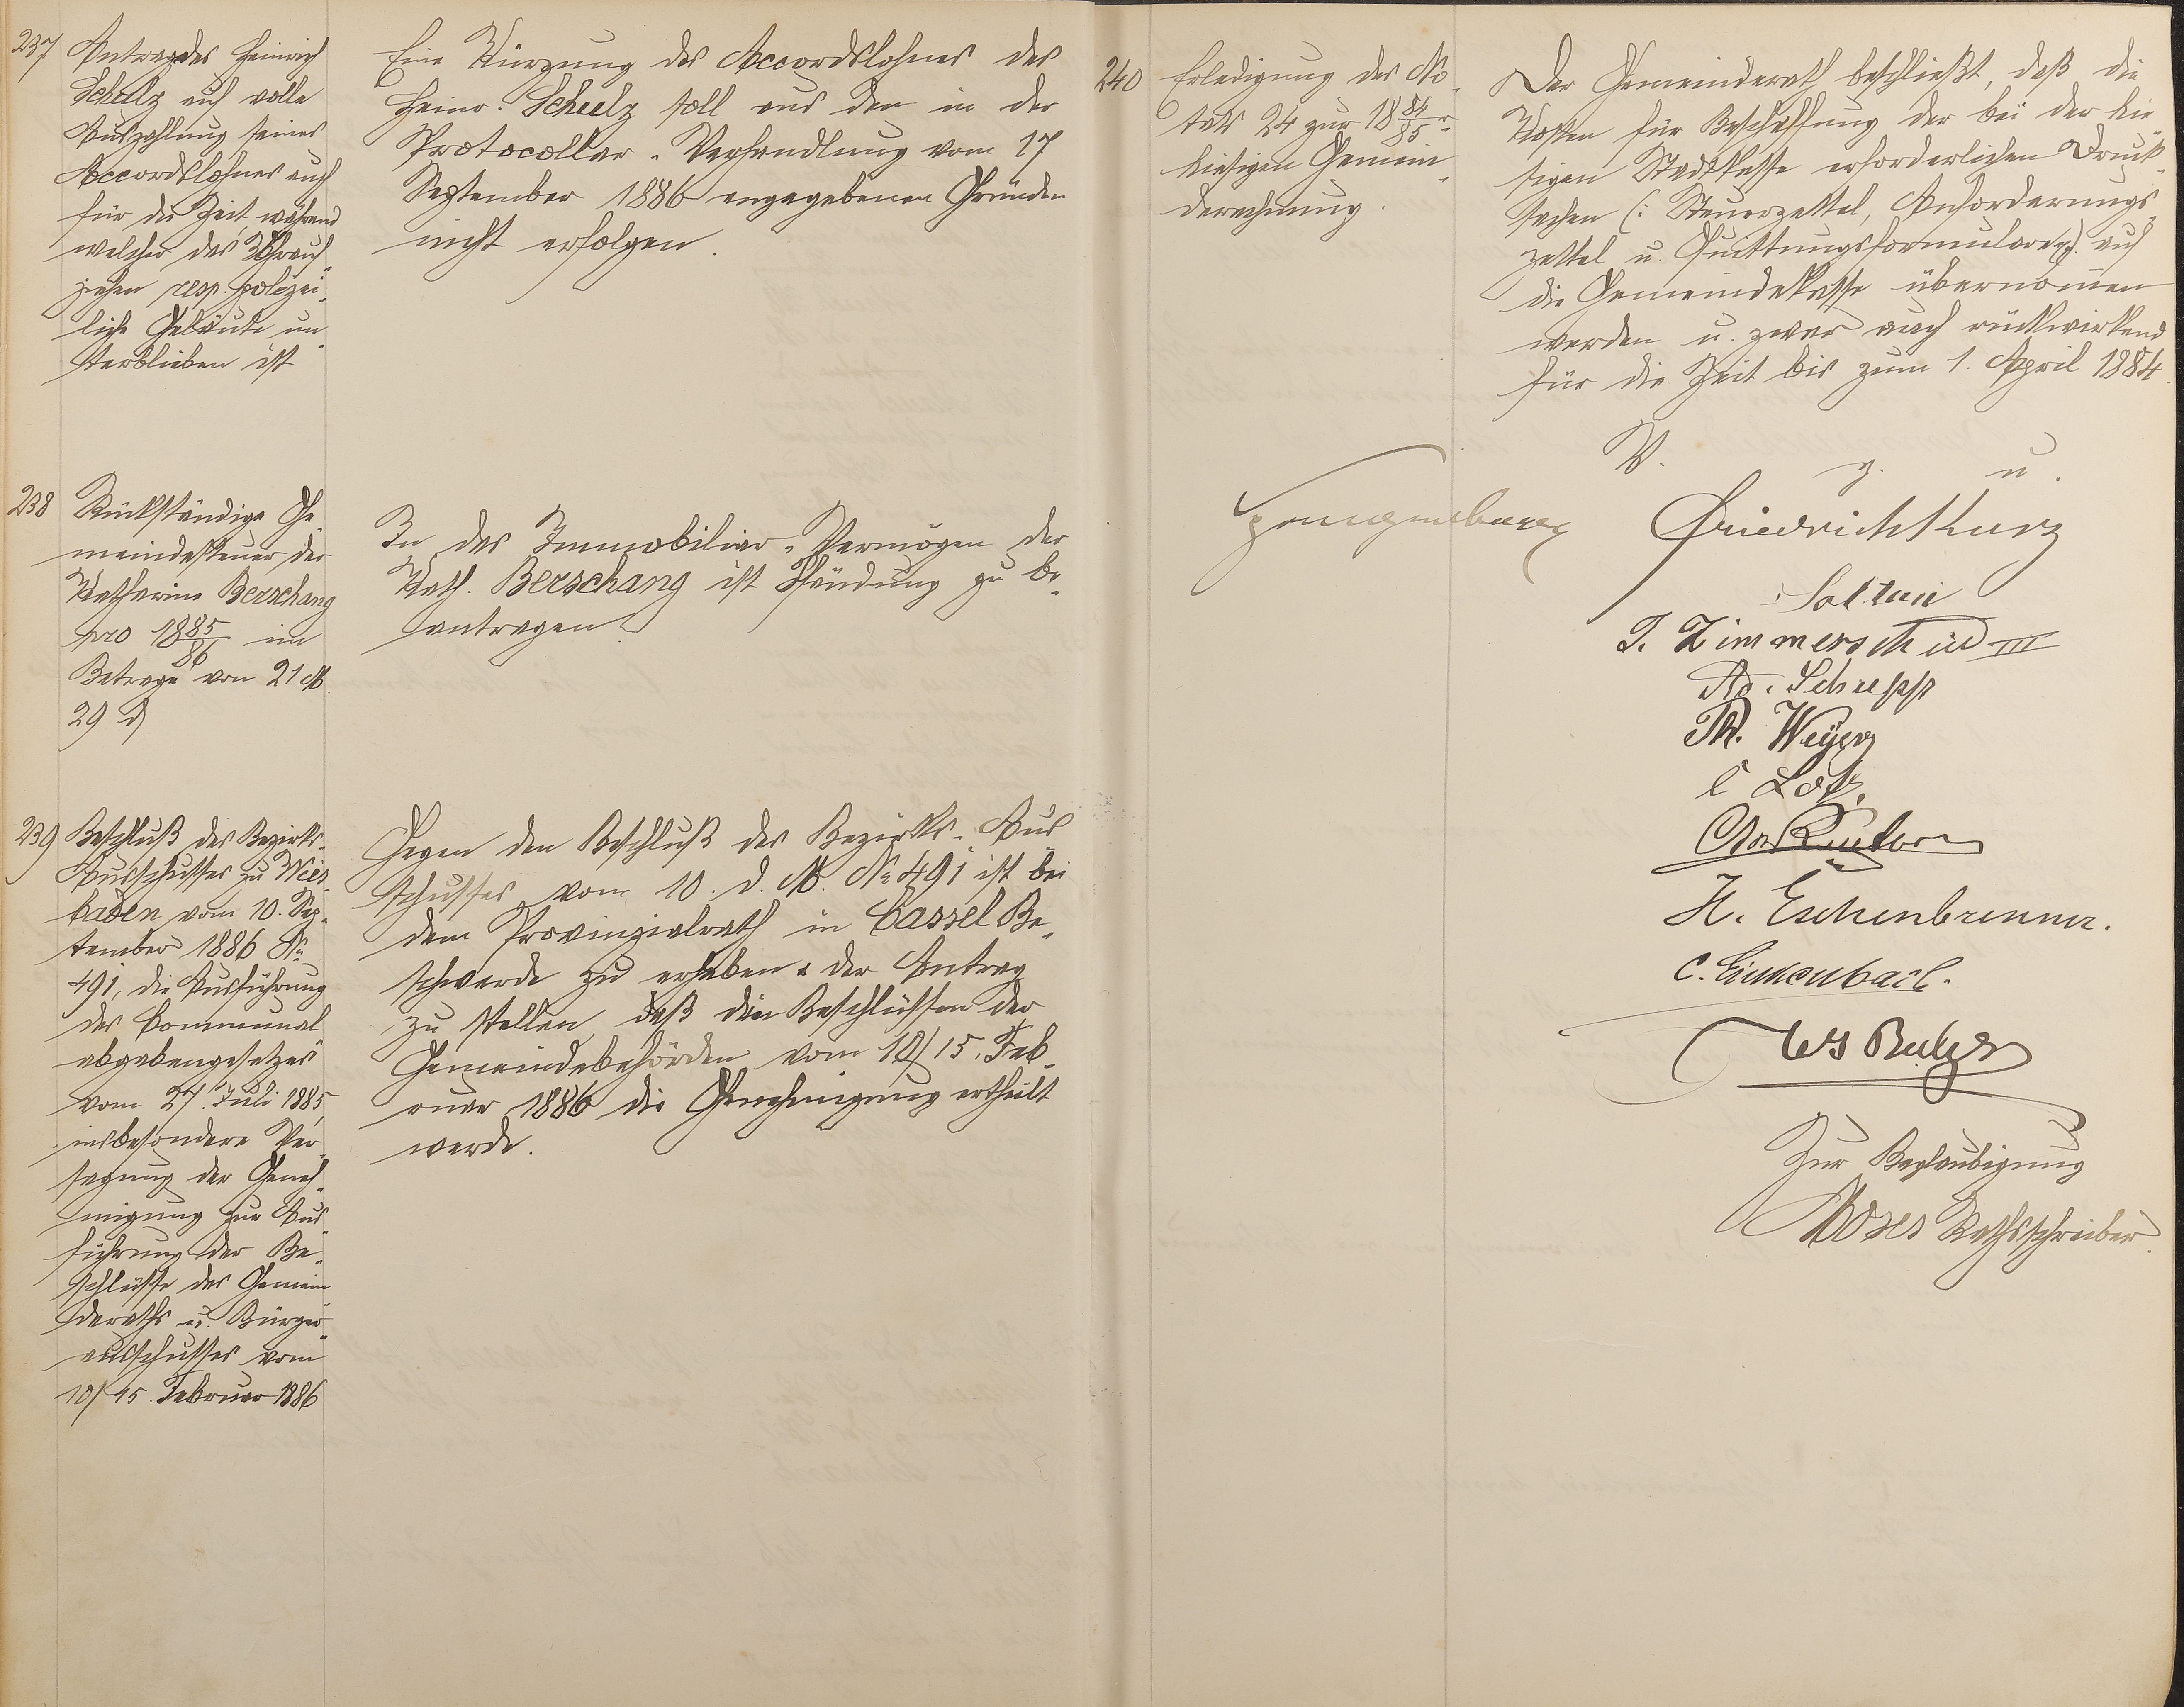 237
Antrag des Heinrich
Schulz auf volle
Auszahlung seines
Accordslohnes auch
für die Zeit, während
welcher das
ziehen resp. polizei-
liche Geläute un-
terblieben ist
Eine Kürzung des Accordslohnes des
Heinr. Schulz soll aus den in der
Protocollar-Verhandlung vom 17
September 1886 angegebenen Gründen
nicht erfolgen.
238
Rückständige Ge-
meindesteuer der
Katharina Berschang
pro 1885/86 im
Betrage von 21 M.
29 d
In das Immobiliar-Vermögen der
Kath. Berschang ist Pfändung zu be-
antragen
239
Beschluß des Bezirks-
Ausschusses zu Wies-
baden vom 10. Sep-
tember 1886 No
491, die Ausführung
des Communal
abgabengesetzes
vom 27. Juli 1885
insbesondere Ver-
sagung der Geneh-
migung zur Aus-
führung der Be-
schlüsse des Gemein
deraths u. Bürger-
ausschusses vom
10/15. Februar 1886
Gegen den Beschluß des Bezirks-Aus
schusses vom 10. d. M. No 491 ist bei
dem Provinzialrath in Cassel Be-
schwerde zu erheben & der Antrag
zu stellen, daß den Beschlüssen der
Gemeindebehörden vom 10/15. Feb-
ruar 1886 die Genehmigung ertheilt
werde.
240
Erledigung des No-
tats 24 zur 1884/85r
hiesigen Gemein-
derechnung.
Der Gemeinderath beschließt, daß die
Kosten für Beschaffung der bei der hie
sigen Stadtkasse erforderlichen Druck-
sachen (: Steuerzettel, Anforderungs-
zettel u. Quittungsformulare p). auf
die Gemeindekasse übernommen
werden u. zwar auch rückwirkend
für die Zeit bis zum 1. April 1884.
V. g. u.
Friedrich Kurz
J. Zimmerschied III
Ad. Schupp
Th. Weyer
C Lotz
H. Eschenbrenner.
C. Linkenbach.
Zur Beglaubigung
Moses Rathsschreiber.